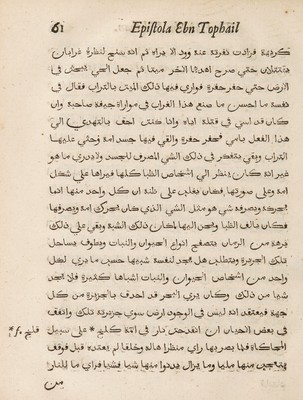 61 Epistola Ebn Tophail
كريهة فزادت نفرته عنه وود الا يراه ثم انه سنح لنظره غرابان
يقتتلان حتى صرع احدهما الاخر ميتا ثم جعل الحي يبحث في
الارض حتى حفر حفرة فواري فيها ذلك الميت بالتراب فقال في
نفسه ما احسن ما صنع هذا الغراب في مواراة جيفة صاحبه وان
كان قد اسي في قتله اياه وانا كنت احق بالتهدي الي
هذا الفعل بامي فحفر حفرة والقي فيها جسد امه وحثي عليها
التراب وبقي يتفكر في ذلك الشي المصرف للجسد ولا يدري ما هو
غير انه كان ينظر الي اشخاص الظبا كلها فيراها علي شكل
امه وعلي صورتها فكان يغلب علي ظنه ان كل واحد منها انما
يحركه ويصرفه شي هو مثل الشي الذي كان يحرك امه ويصرفها
فكان يالف الظبا ويحن اليها لمكان ذلك الشبه وبقي علي ذلك
برهة من الزمان يتصفح انواع الحيوان والنبات ويطوف بساحل
تلك الجزيرة ويتطلب هل يجد لنفسه شبيها حسب ما يري لكل
واحد من اشخاص الحيوان والنبات اشباها كثيرة فلا يجد
شيا من ذلك وكان يري البحر قد احدق بالجزيرة من كل
جهة فيعتقد انه ليس في الوجود ارض سوي جزيرته تلك واتفق
في بعض الاحيان ان انقدحت نار في اجمة * علي سبيل
المحاكة فلما بصر بها راي منظرا هاله وخلقا لم يعتده قبل فوقف
يتعجب منها مليا وما يزال يدنوا منها شيا فشيا فراي ما للنار
من